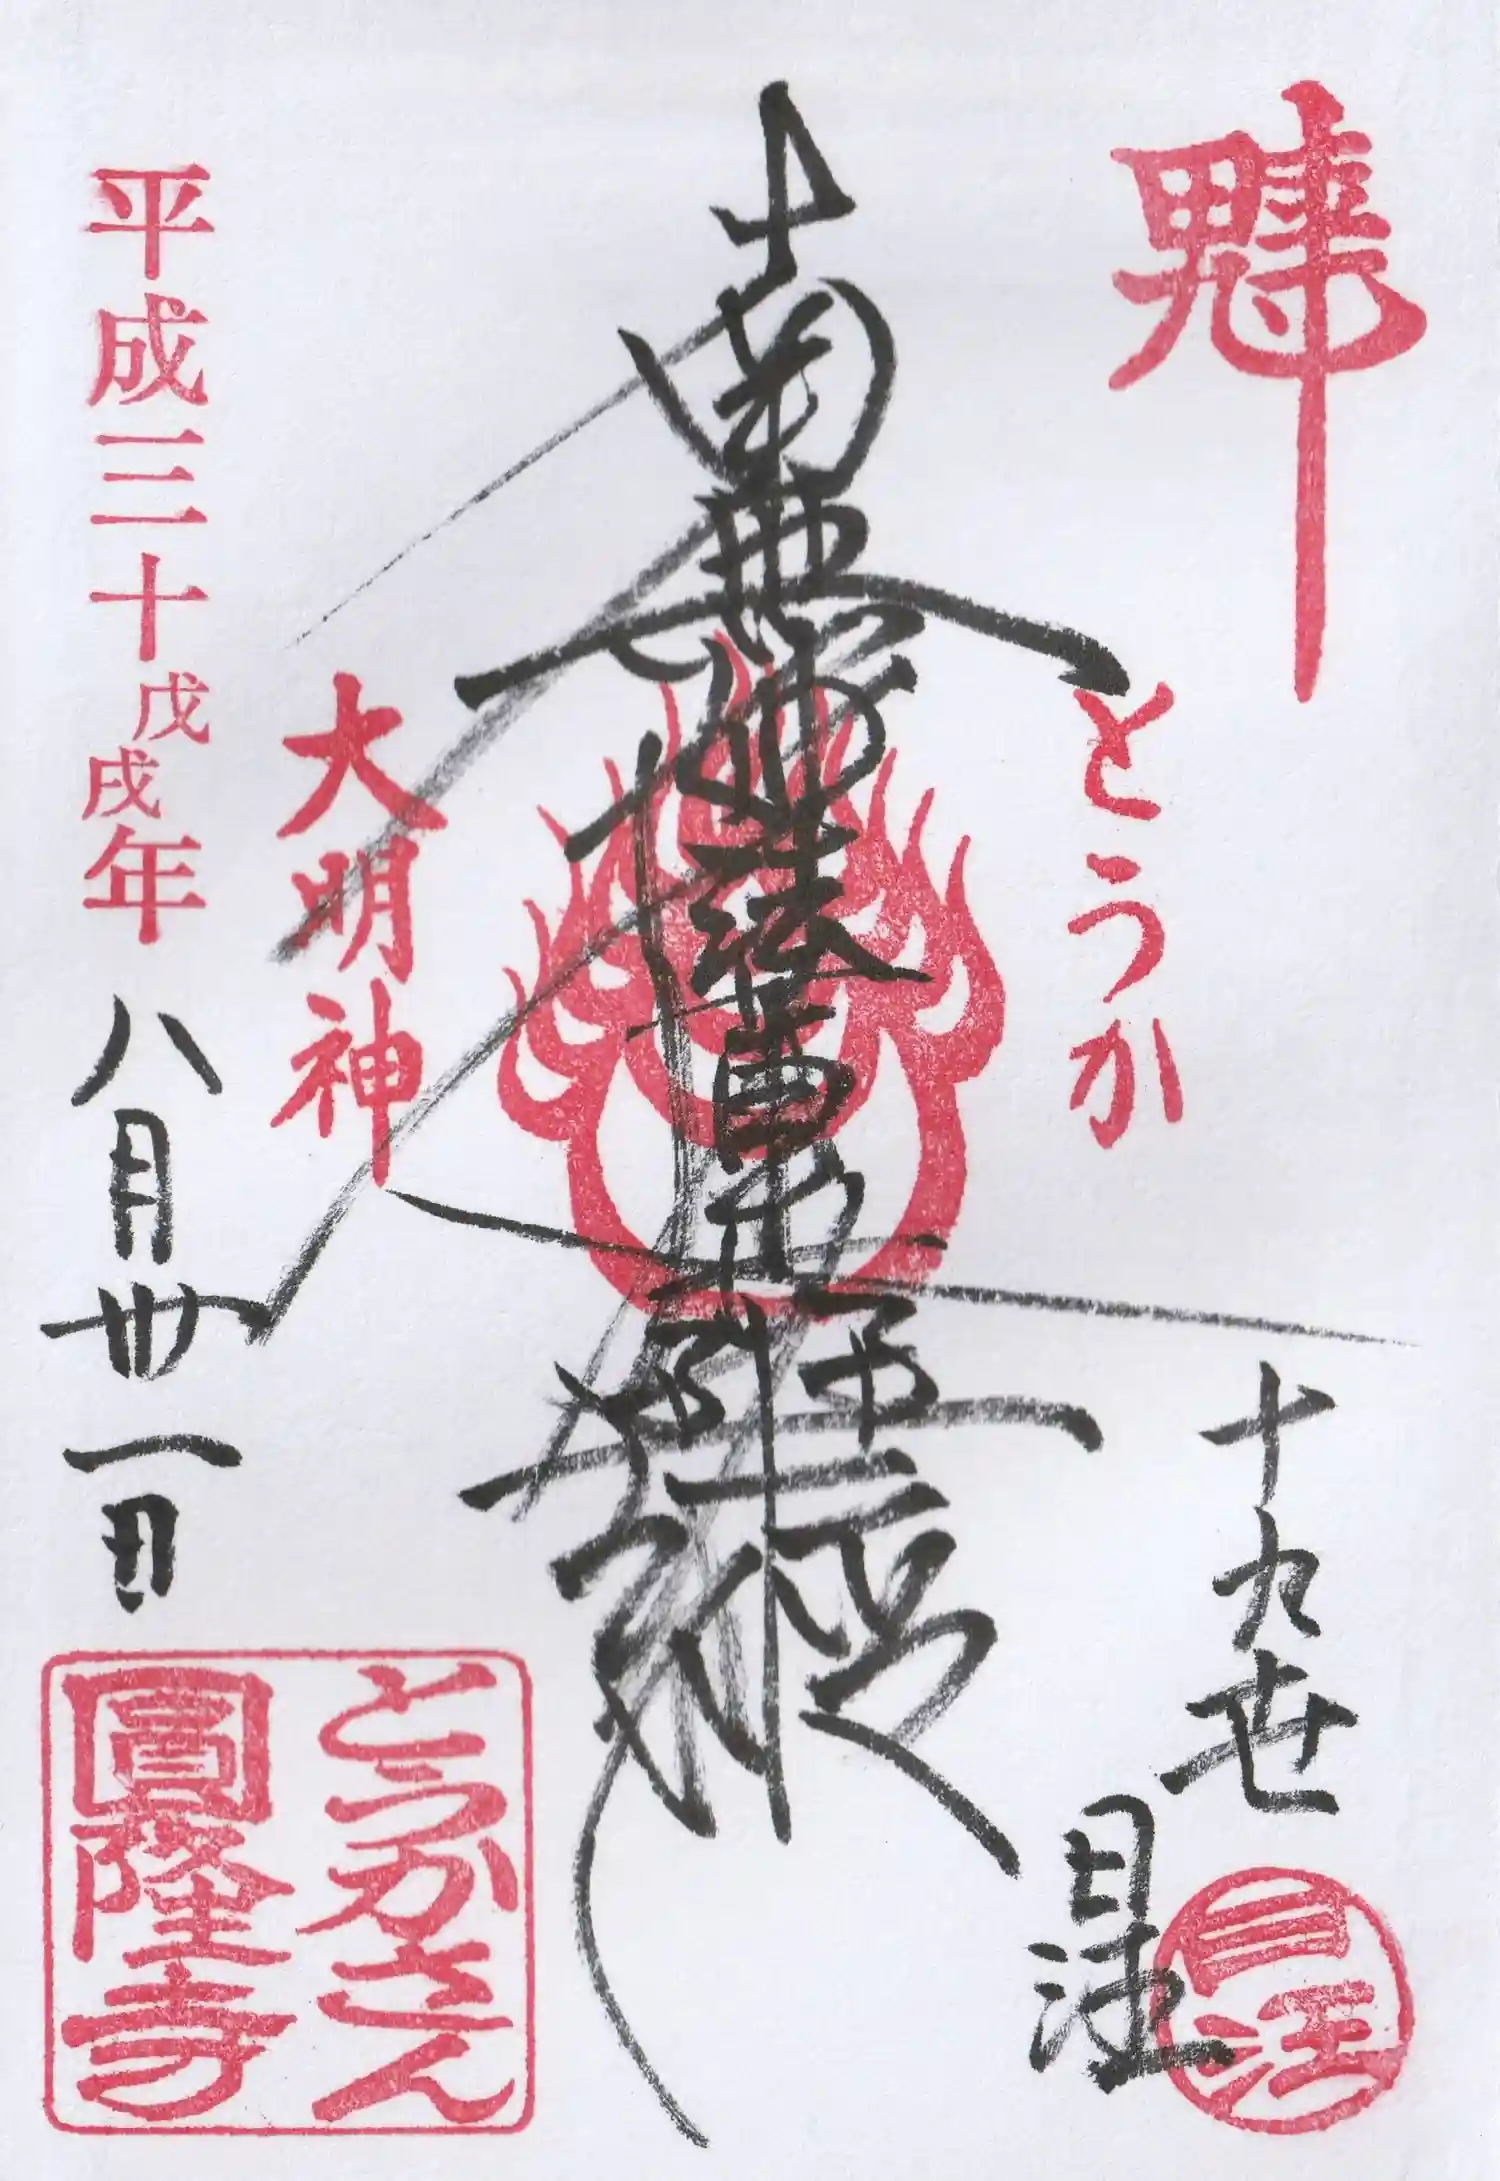 とうか
十九世
日
南無妙法蓮華経
大明神
平成三十戊戌年八月卅一日
とうかさん
圓隆寺